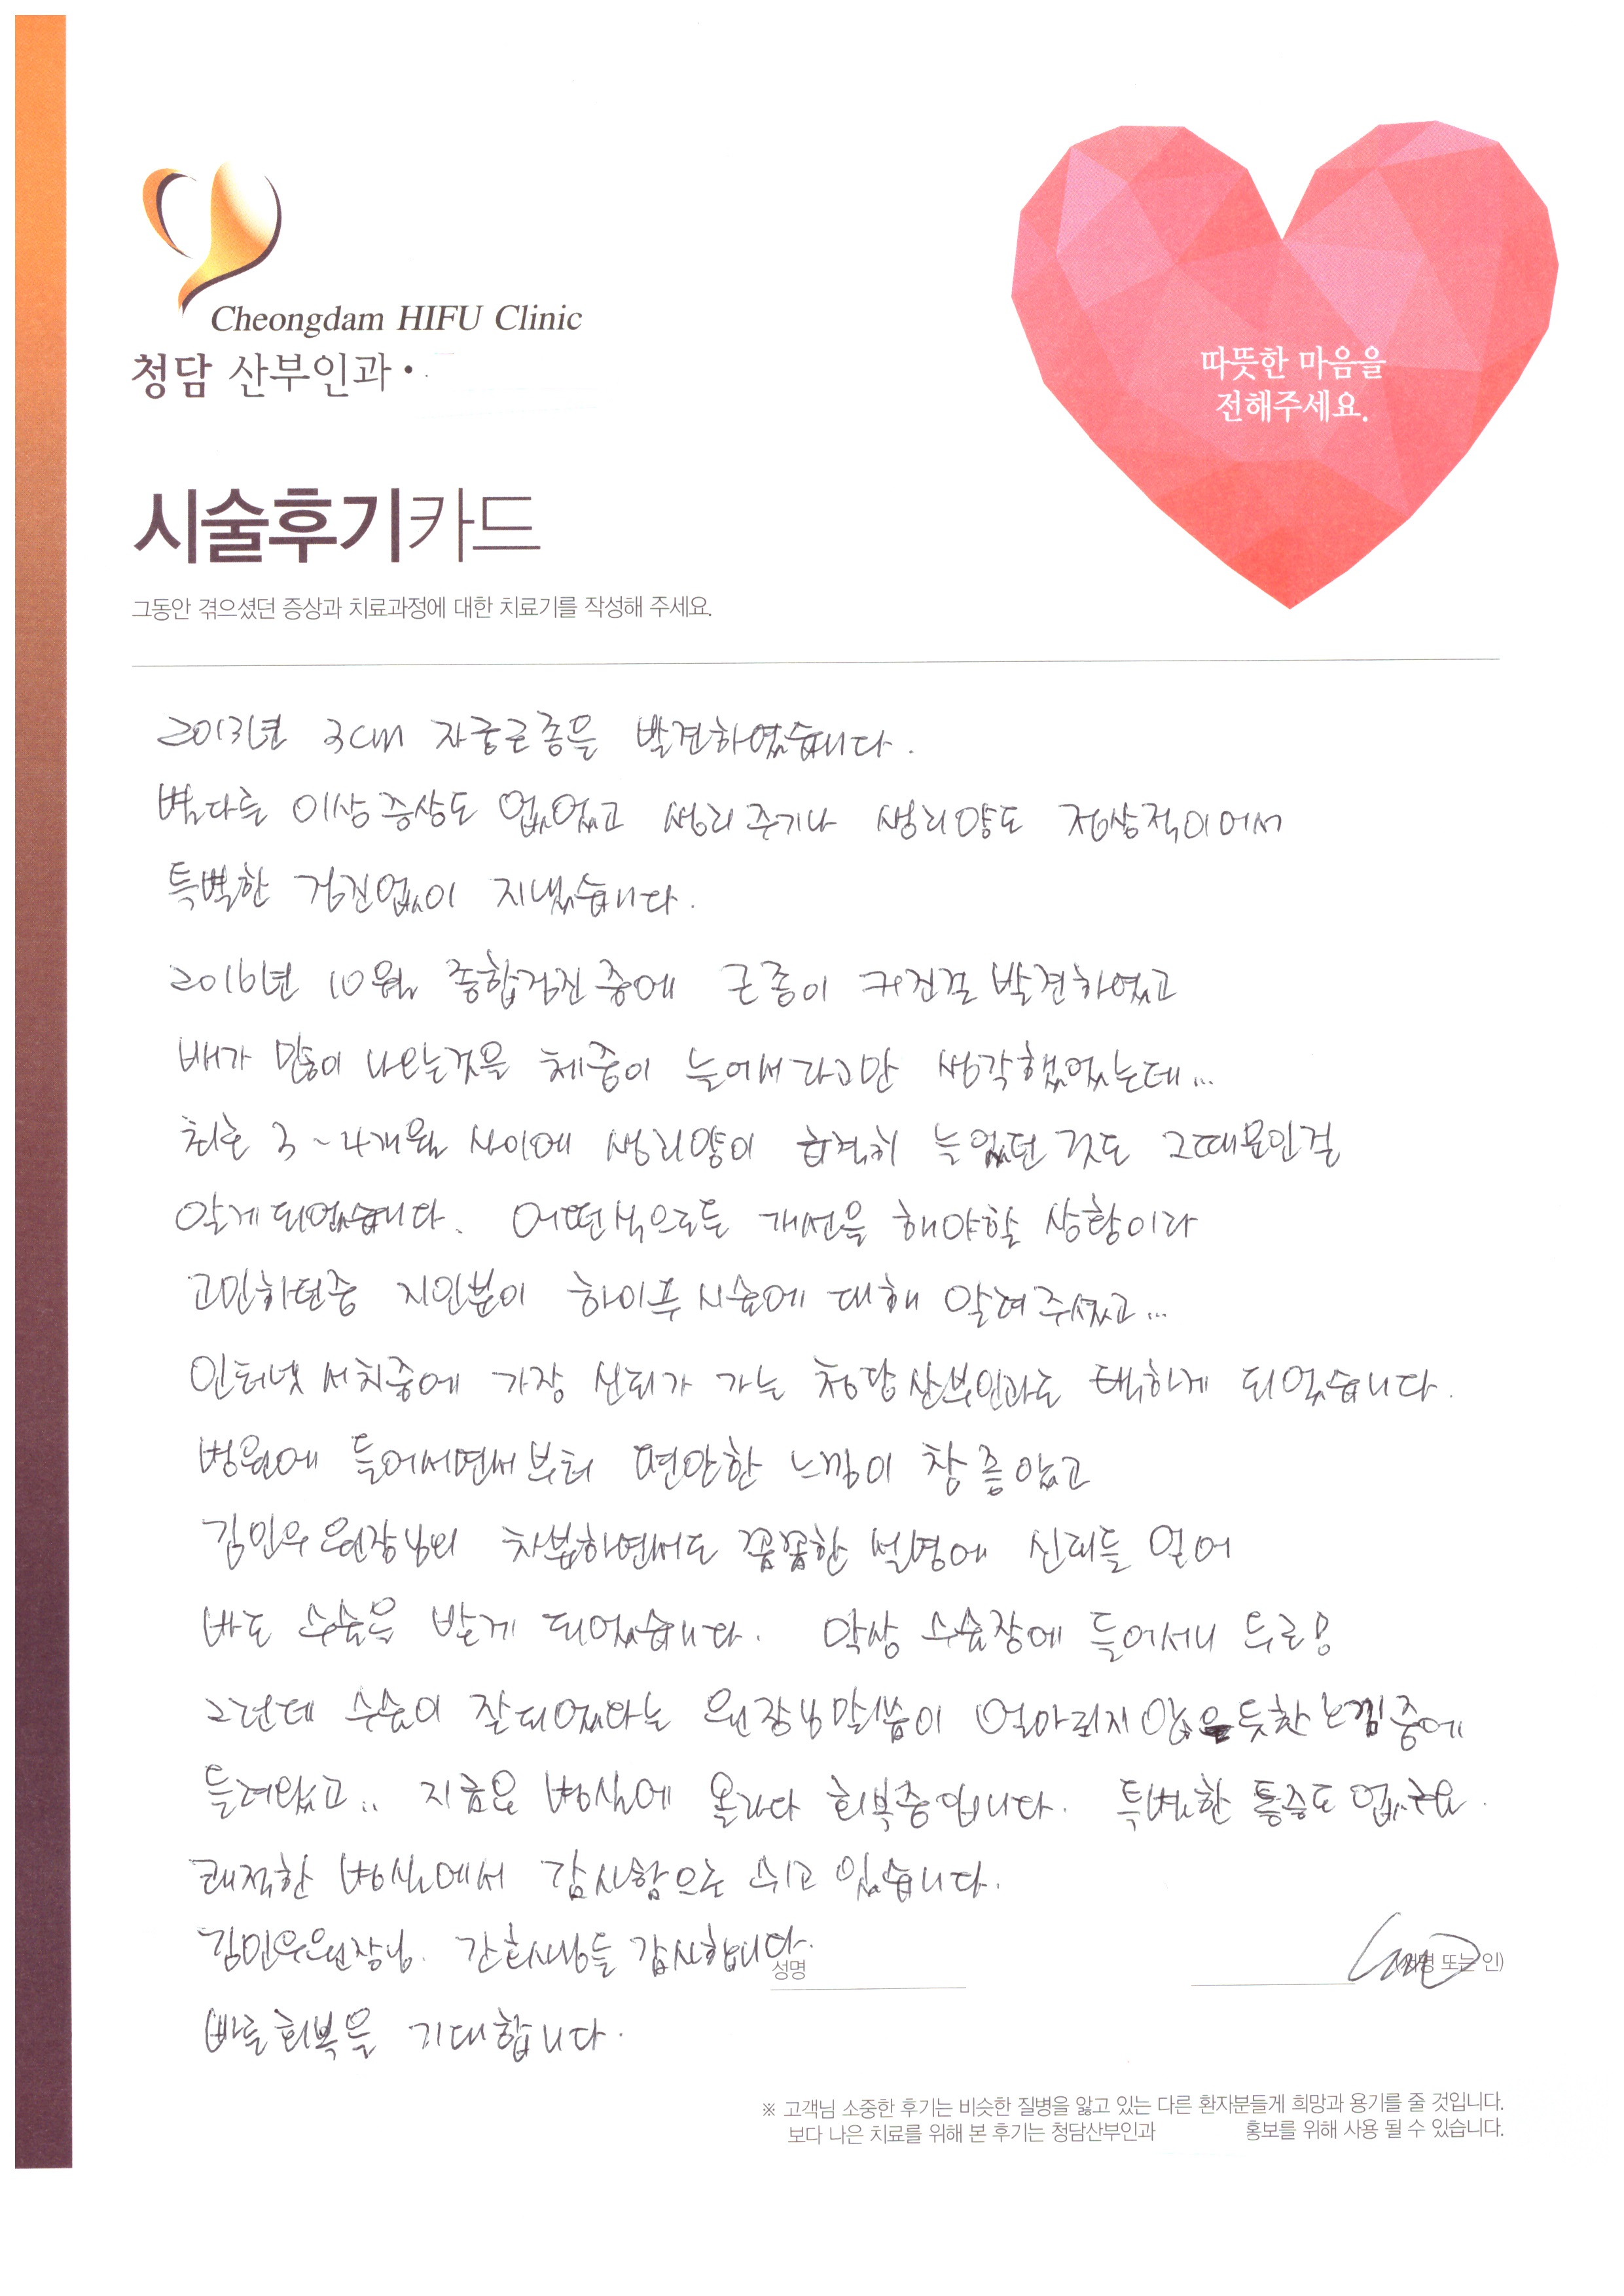 Cheongdam HIFU Clinic
청담 산부인과 •
따뜻한 마음을
전해주세요.
시술후기카드
그동안 겪으셨던 증상과 치료과정에 대한 치료기를 작성해 주세요.
2013년 3cm 자궁근종을 발견하였습니다.
별다른 이상증상도 없었고 생리주기나 생리양도 정상적이어서
특별한 검진없이 지냈습니다.
2016년 10월 종합검진중에 근종이 커진걸 발견하였고
배가 많이 나오는것을 체중이 늘어서라고만 생각했었는데...
최근 3~4개월 사이에 생리양이 급격히 늘었던 것도 그때문인걸
알게되었습니다. 어떤식으로든 개선을 해야할 상황이라
고민하던중 지인분이 하이푸시술에 대해 알려주셨고...
인터넷 서치중에 가장 신뢰가 가는 청담산부인과로 택하게 되었습니다.
병원에 들어서면서부터 편안한 느낌이 참 좋았고
김민우 원장님의 차분하면서도 꼼꼼한 설명에 신뢰를 얻어
바로 수술을 받게 되었습니다. 막상 수술장에 들어서니 두근!
그런데 수술이 잘되었다는 원장님말씀이 얼마되지 않은듯한 느낌중에
들려왔고.. 지금은 병실에 올라와 회복중입니다. 특별한 통증도 없구요.
쾌적한 병실에서 감사함으로 쉬고 있습니다.
김민우원장님. 간호사님들 감사합니다.
성명
(서명 또는 인)
빠른회복을 기대합니다.
※ 고객님 소중한 후기는 비슷한 질병을 앓고 있는 다른 환자분들게 희망과 용기를 줄 것입니다.
보다 나은 치료를 위해 본 후기는 청담산부인과 홍보를 위해 사용 될 수 있습니다.